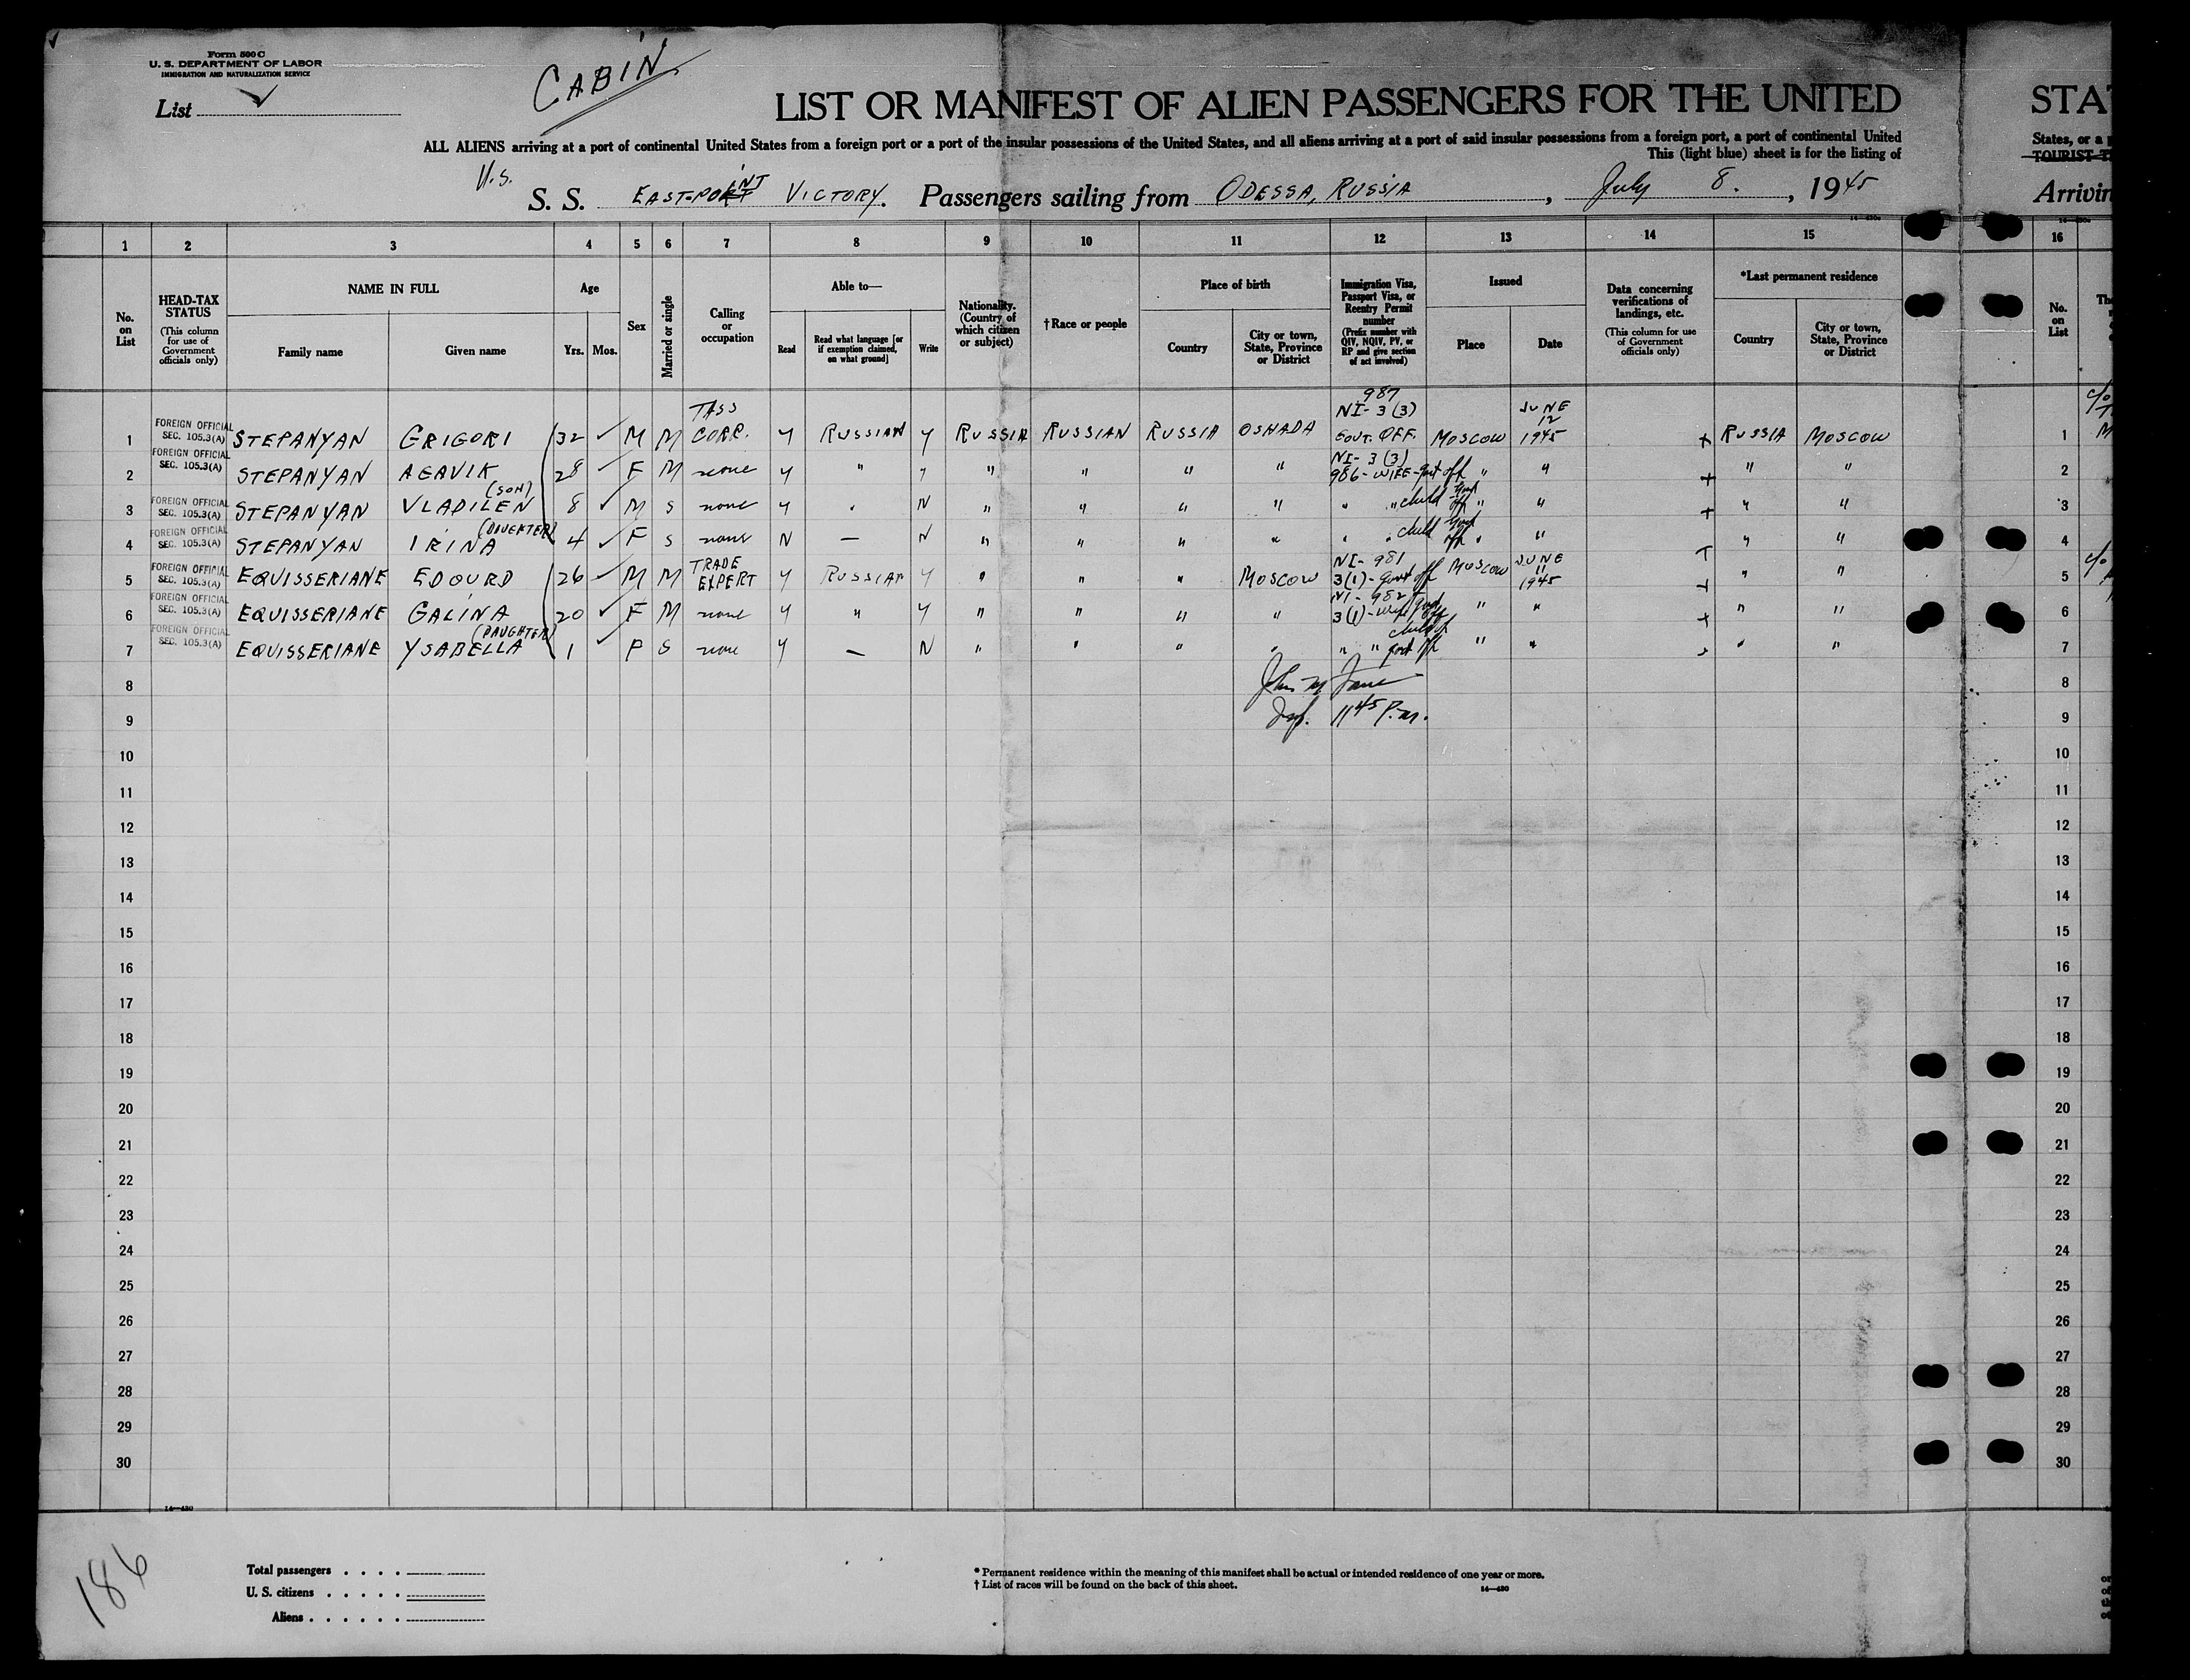 Form 500 C
U. S. DEPARTMENT OF LABOR
IMMIGRATION AND NATURALIZATION SERVICE
List
CABIN
LIST OR MANIFEST OF ALIEN PASSENGERS FOR THE UNITED
STAT
ALL ALIENS arriving at a port of continental United States from a foreign port or a port of the insular possessions of the United States, and all aliens arriving at a port of said insular possessions from a foreign port, a port of continental United
States, or a p
This (light blue) sheet is for the listing of
TOURIST T
U.S.
S. S. EASTPOINT VICTORY. Passengers sailing from ODESSA, RUSSIA, July 8., 1945
Arrivin
1 2 3 4 5 6 7 8 9 10 11 12 13 14 15 16
No. on List
HEAD-TAX STATUS
(This column for use of Government officials only)
NAME IN FULL
Family name
Given name
Age
Yrs.
Mos.
Sex
Married or single
Calling or occupation
Able to—
Read
Read what language [or if exemption claimed, on what ground]
Write
Nationality. (Country of which citizen or subject)
†Race or people
Place of birth
Country
City or town, State, Province or District
Immigration Visa, Passport Visa, or Reentry Permit number
(Prefix number with QIV, NQIV, PV, or RP and give section of act involved)
Issued
Place
Date
Data concerning verifications of landings, etc.
(This column for use of Government officials only)
*Last permanent residence
Country
City or town, State, Province or District
No. on List
1 FOREIGN OFFICIAL SEC. 105.3(A) STEPANYAN GRIGORI 32 M M TASS CORP. Y RUSSIAN Y RUSSIA RUSSIAN RUSSIA OSHADA 987 NI-3(3) GOVT. OFF. MOSCOW JUNE 12 1945 RUSSIA MOSCOW 1
2 FOREIGN OFFICIAL SEC. 105.3(A) STEPANYAN AGAVIK 28 F M none Y " Y " " " " NI-3(3) 986-WIFE-govt off " " " " 2
3 FOREIGN OFFICIAL SEC. 105.3(A) STEPANYAN VLADILEN (SON) 8 M S none Y " N " " " " " " child govt off " " " " 3
4 FOREIGN OFFICIAL SEC. 105.3(A) STEPANYAN IRINA (DAUGHTER) 4 F S none N — N " " " " " " child govt off " " " " 4
5 FOREIGN OFFICIAL SEC. 105.3(A) EQUISSERIANE EDOURD 26 M M TRADE EXPERT Y RUSSIAN Y " " " MOSCOW NI-981 3(1)-govt off MOSCOW JUNE 11 1945 " " 5
6 FOREIGN OFFICIAL SEC. 105.3(A) EQUISSERIANE GALINA 20 F M none Y " Y " " " " NI-982 3(1)-wife govt off " " " " 6
7 FOREIGN OFFICIAL SEC. 105.3(A) EQUISSERIANE YSABELLA (DAUGHTER) 1 F S none Y — N " " " " " " child of govt off " " " " 7
8 8
9 Insp. 11 45 P.M. 9
10 10
11 11
12 12
13 13
14 14
15 15
16 16
17 17
18 18
19 19
20 20
21 21
22 22
23 23
24 24
25 25
26 26
27 27
28 28
29 29
30 30
14—430
186
Total passengers
U. S. citizens
Aliens
* Permanent residence within the meaning of this manifest shall be actual or intended residence of one year or more.
† List of races will be found on the back of this sheet.
14—430